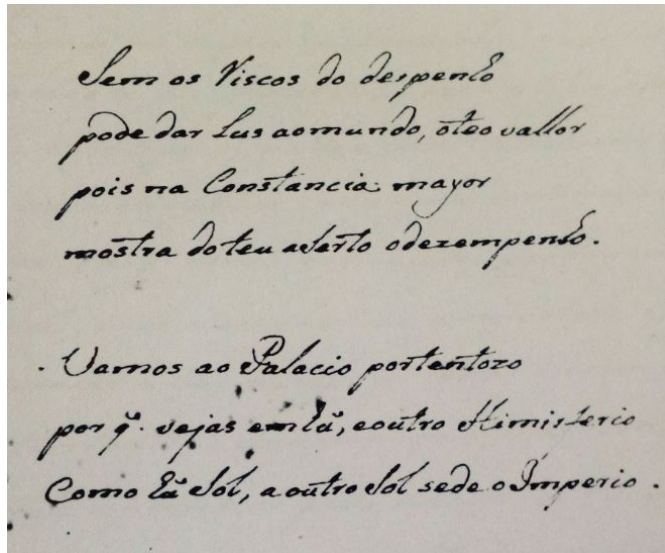 Sem os Riscos do despenho
pode dar Lus aomundo, oteo vallor
pois na Constancia mayor
mostra do teu aserto odezempenho.
Vamos ao Palacio portentozo
por q̃. vejas em hũ, eoutro Himisferio
Como hũ Sol, a outro Sol sede o Imperio.